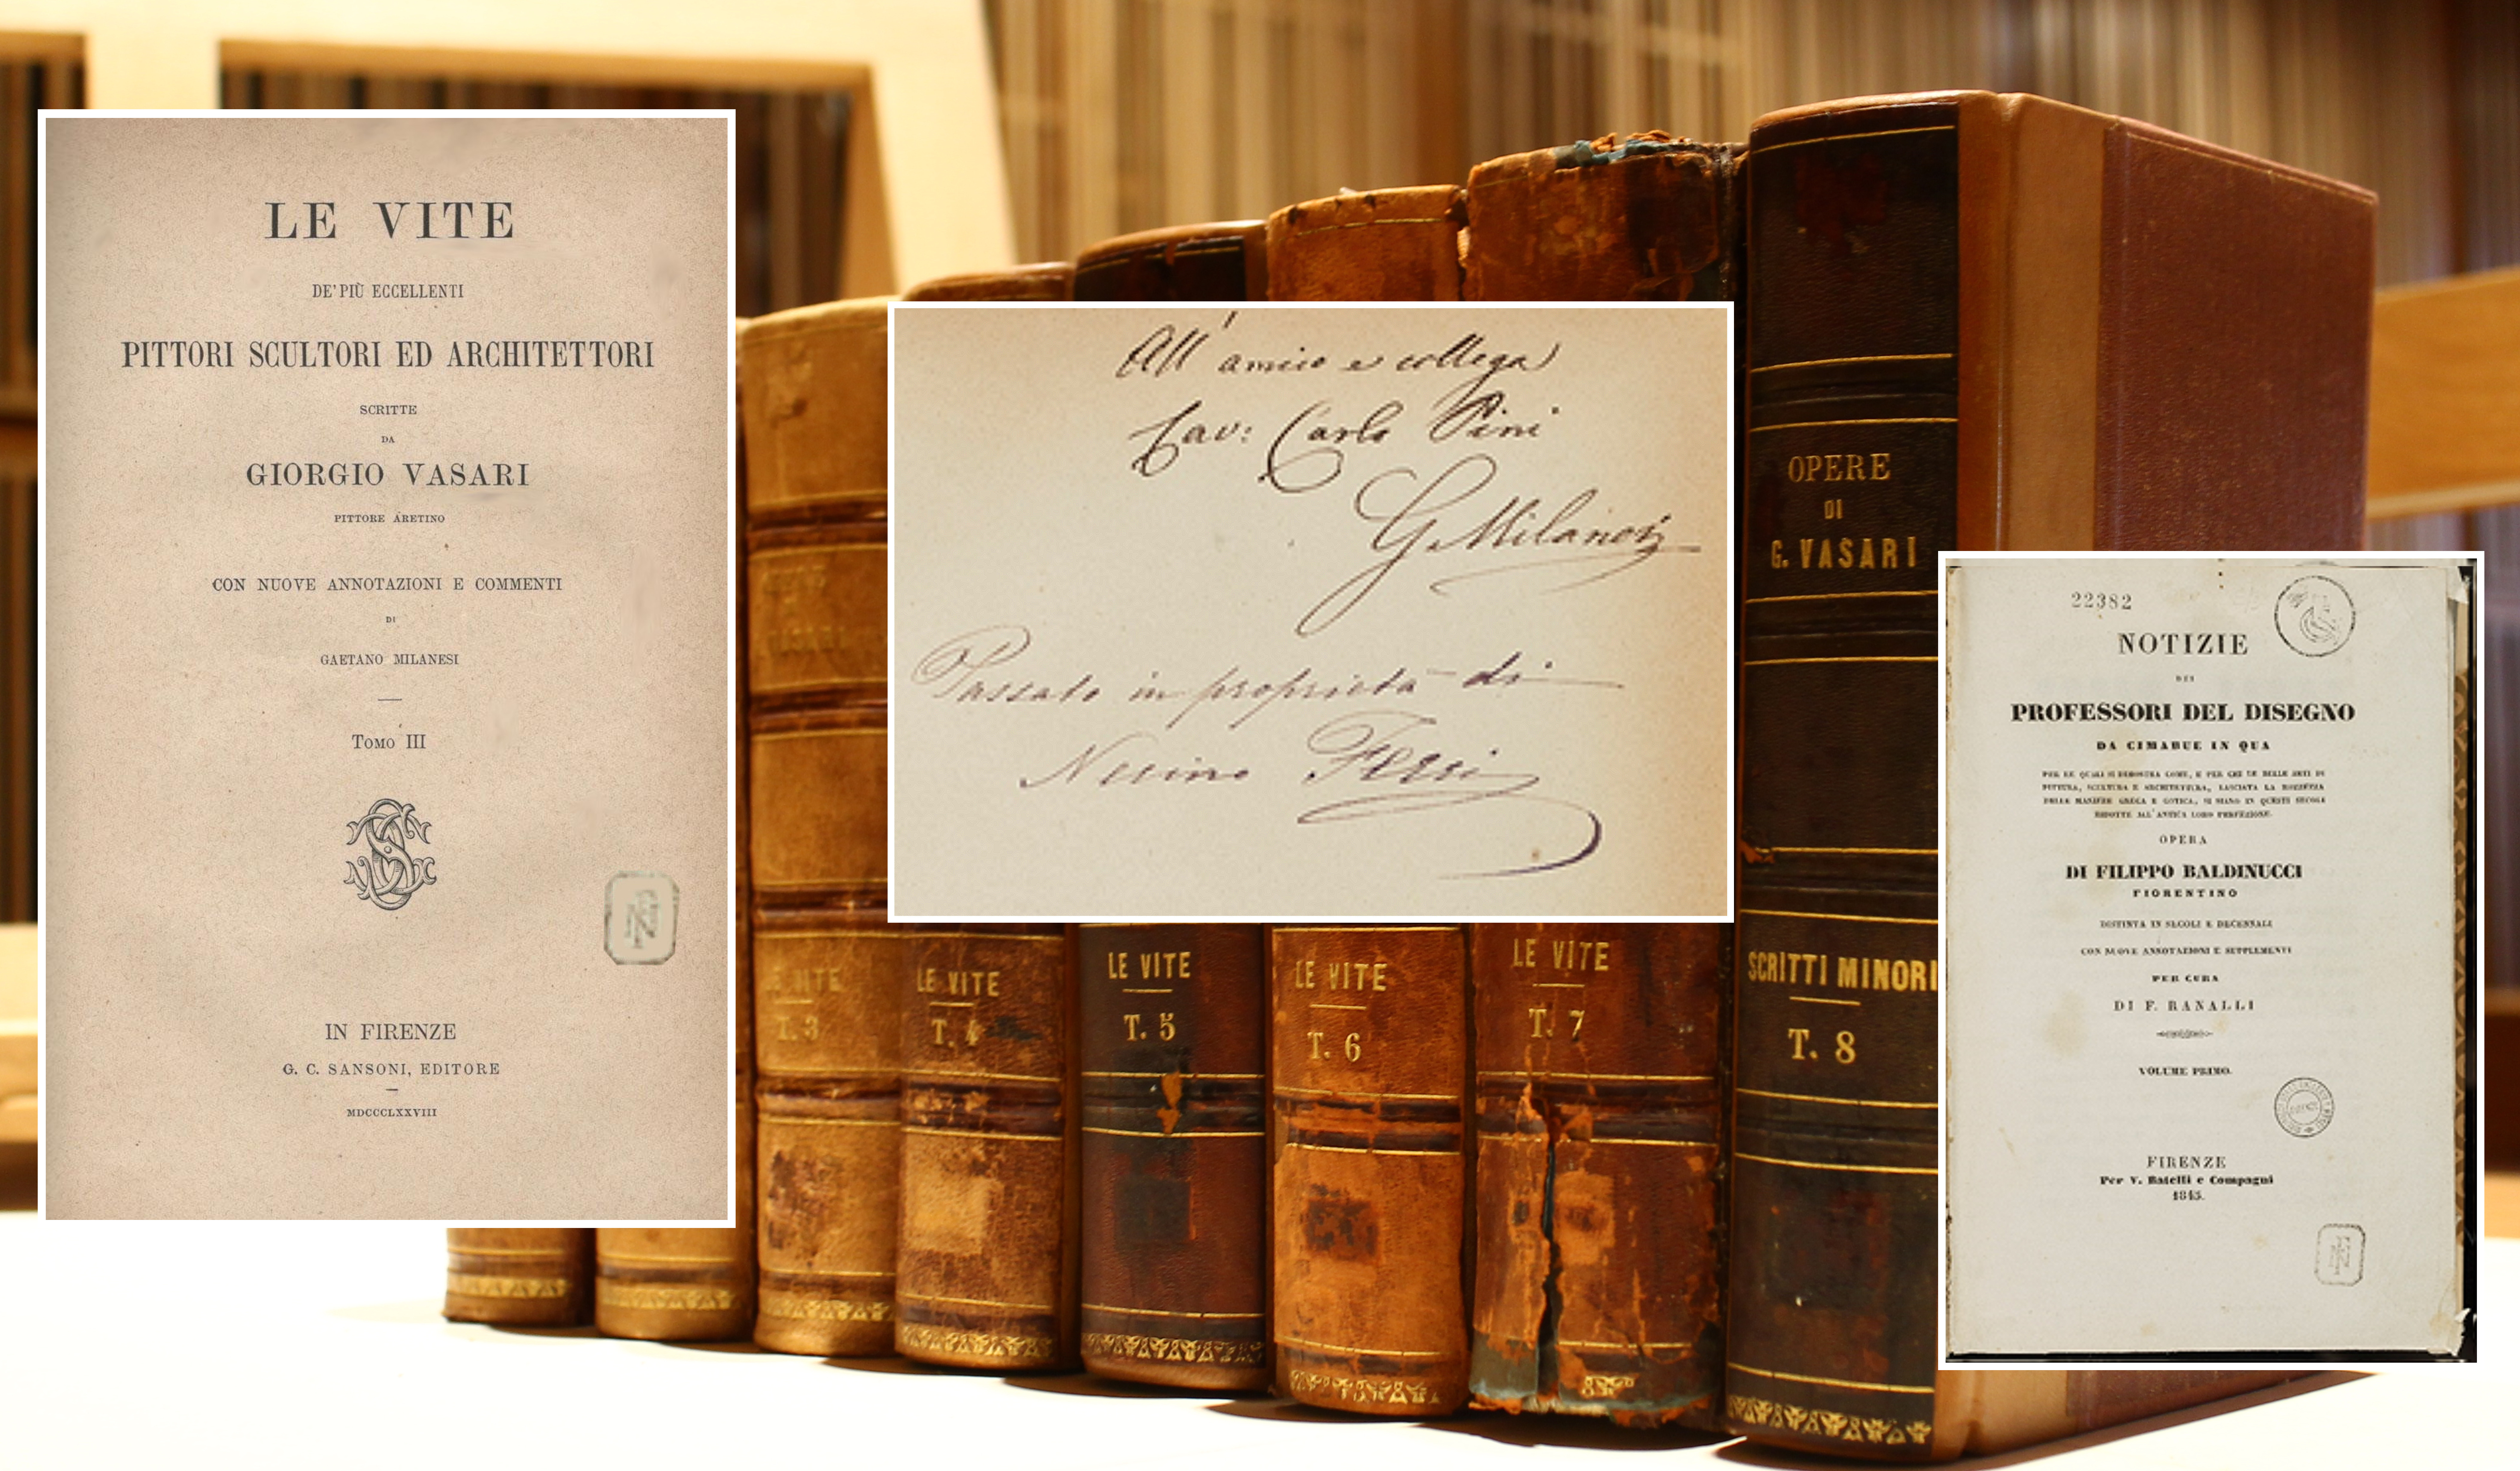 LE VITE
DE' PIÙ ECCELLENTI
PITTORI SCULTORI ED ARCHITETTORI
SCRITTE
DA
GIORGIO VASARI
PITTORE ARETINO
CON NUOVE ANNOTAZIONI E COMMENTI
DI
GAETANO MILANESI
TOMO III
IN FIRENZE
G. C. SANSONI, EDITORE
MDCCCLXXVIII
All' amico e collega
Cav: Carlo Pini
G. Milanesi
Passato in proprietà di
Nerino Ferri
LE VITE
T. 3
LE VITE
T. 4
LE VITE
T. 5
LE VITE
T. 6
LE VITE
T. 7
OPERE
DI
G. VASARI
SCRITTI MINORI
T. 8
22382
NOTIZIE
DEI
PROFESSORI DEL DISEGNO
DA CIMABUE IN QUA
PER LE QUALI SI DIMOSTRA COME, E PER CHE LE BELLE ARTI DI
PITTURA, SCULTURA E ARCHITETTURA, LASCIATA LA ROZZEZZA
DELLE MANIERE GRECA E GOTICA, SI SIANO IN QUESTI SECOLI
RIDOTTE ALL'ANTICA LORO PERFEZIONE.
OPERA
DI FILIPPO BALDINUCCI
FIORENTINO
DISTINTA IN SECOLI E DECENNALI
CON NUOVE ANNOTAZIONI E SUPPLEMENTI
PER CURA
DI F. RANALLI
VOLUME PRIMO.
FIRENZE
Per V. Batelli e Compagni
1845.